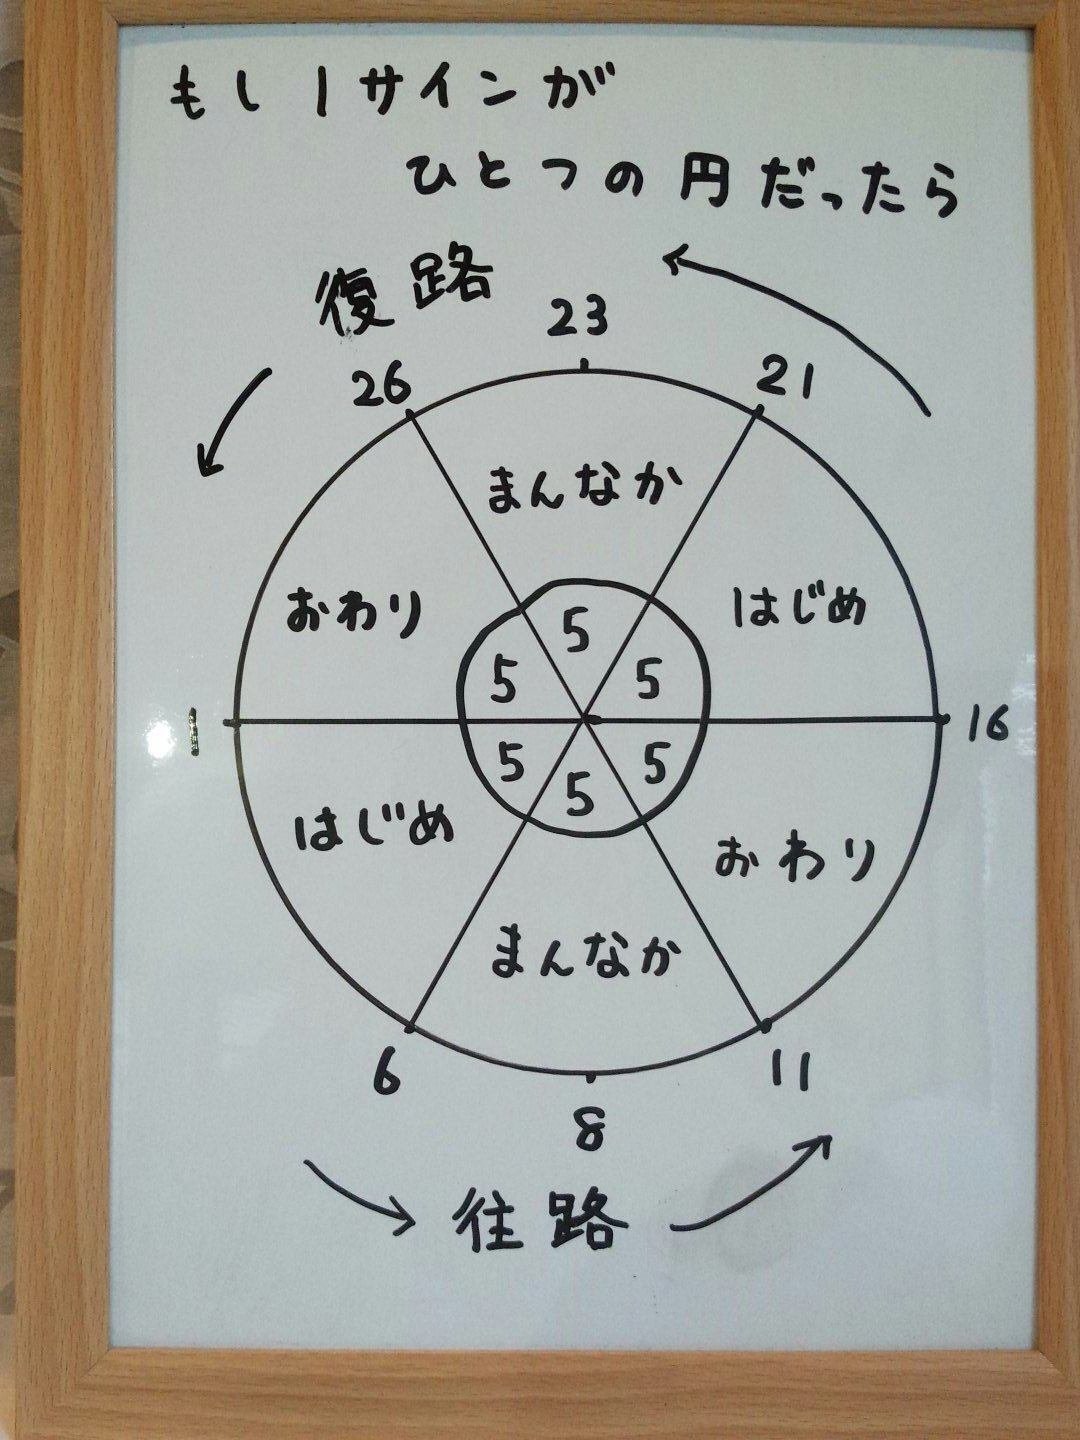 もし1サインが
ひとつの円だったら
復路
23
26
21
まんなか
おわり
はじめ
5
5
5
1
16
5
5
5
はじめ
おわり
まんなか
6
11
8
往路